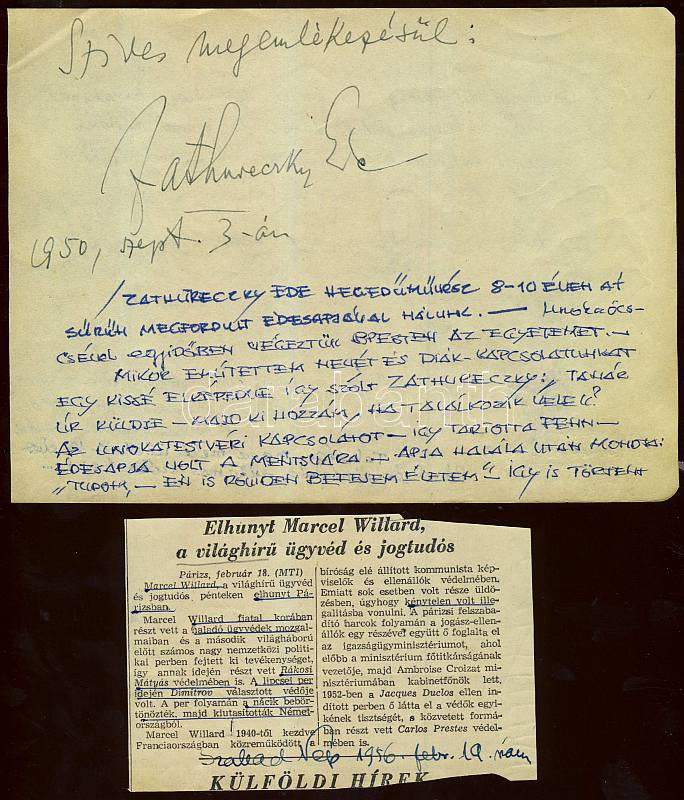 Szives megemlékezésül:
Zathureczky Ede
1950, szept. 3-án
/ZATHURECZKY EDE HEGEDŰMŰVÉSZ 8-10 ÉVEN ÁT
SŰRŰN MEGFORDULT ÉDESAPJÁVAL NÁLUNK. — UNOKAÖCS-
CSÉVEL EGYIDŐBEN VÉGEZTÜK PESTEN AZ EGYETEMET. —
MIKOR EMLÍTETTEM NEVÉT ÉS DIÁK-KAPCSOLATUNKAT
EGY KISSÉ ELRÉVEDVE ÍGY SZÓLT ZATHURECZKY: TANÁR
ÚR KÜLDJE — HA TALÁLKOZIK VELE?
AZ UNOKATESTVÉRI KAPCSOLATOT — ÍGY TARTOTTA FENN —
ÉDESAPJA VOLT A MENTSVÁRA. — APJA HALÁLA UTÁN MONDTA:
„TUDOM, — ÉN IS RÖVIDEN ÉLETEM" ÍGY IS TÖRTÉNT
darabanth
Elhunyt Marcel Willard,
a világhírű ügyvéd és jogtudós
Párizs, február 18. (MTI)
Marcel Willard, a világhírű ügyvéd
és jogtudós pénteken elhunyt Pá-
rizsban.
Marcel Willard fiatal korában
részt vett a haladó ügyvédek mozgal-
maiban és a második világháború
előtt számos nagy nemzetközi politi-
kai perben fejtett ki tevékenységet,
így annak idején részt vett Rákosi
Mátyás védelmében is. A lipcsei per
idején Dimitrov választott védője
volt. A per folyamán a nácik bebör-
tönözték, majd kiutasították Német-
országból.
Marcel Willard 1940-től kezdve
Franciaországban közreműködött a
bíróság elé állított kommunista kép-
viselők és ellenállók védelmében.
Emiatt sok esetben volt része üldö-
zésben, úgyhogy kénytelen volt ille-
galitásba vonulni. A párizsi felszaba-
dító harcok folyamán a jogász-ellen-
állók egy részével együtt ő foglalta el
az igazságügyminisztériumot, ahol
előbb a minisztérium főtitkárságának
vezetője, majd Ambroise Croizat mi-
nisztériumában kabinetfőnök lett.
1952-ben a Jacques Duclos ellen in-
dított perben ő látta el a védők egyi-
kének tisztségét, s közvetett formá-
ban részt vett Carlos Prestes védel-
mében is.
Szabad Nép 1956. febr. 19. szám
KÜLFÖLDI HÍREK